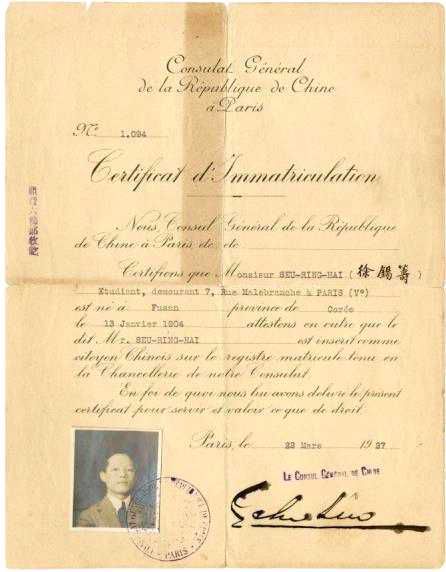 Consulat Général
de la République de Chine
à Paris
No. 1.094
Certificat d'Immatriculation
Nous, Consul Général de la République
de Chine à Paris, de, etc
Certifions que Monsieur SEU-RING-HAI (徐錫籌)
Etudiant, demeurant 7, Rue Malebranche à PARIS (Ve)
est né à Fusan province de Corée
le 13 Janvier 1904 attestons en outre que le
dit Mr. SEU-RING-HAI est inscrit comme
citoyen Chinois sur le registre matricule tenu en
la Chancellerie de notre Consulat.
En foi de quoi nous lui avons délivré le présent
certificat pour servir et valoir ce que de droit.
Paris, le 22 Mars 1927
LE CONSUL GÉNÉRAL DE CHINE
PARIS